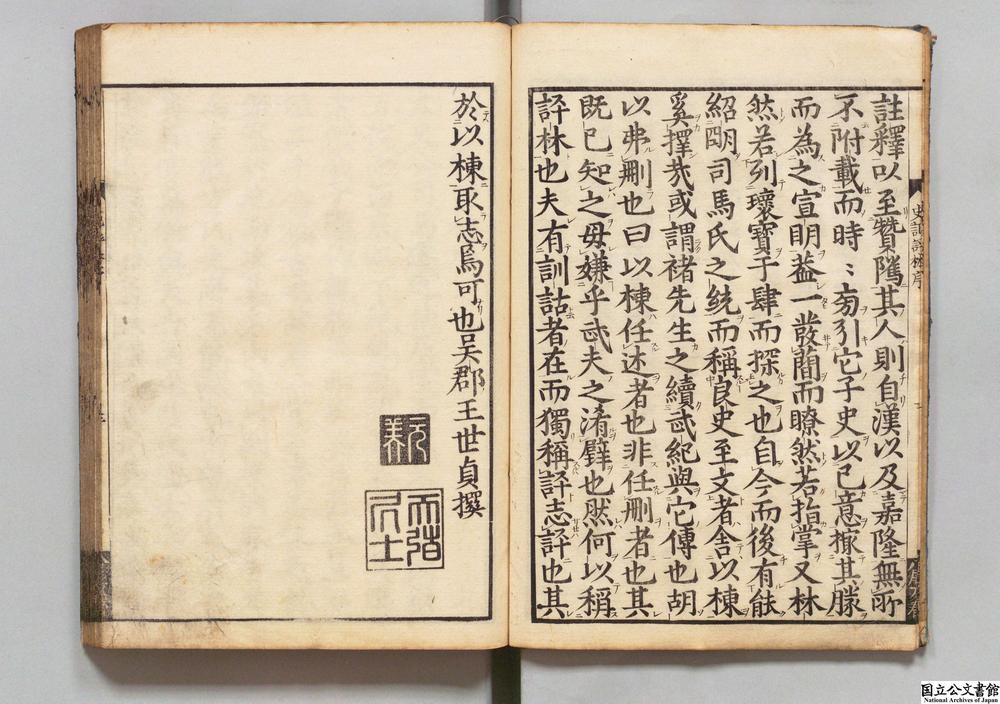 註釋以至贊隲其人則自漢以及嘉隆無所
不附載而時〻旁引它子史以已意其勝
而為之宣明葢一發蕳而瞭然若指掌又林
然若列瓌寶于肆而探之也自今而後有能
紹明司馬氏之統而稱良史至文者舍以棟
奚擇哉或謂褚先生之續武紀與它傳也胡
以弗刪也曰以棟任述者也非任刪者也其
既已知之毋嫌乎武夫之淆璧也然何以稱
評林也夫有訓詁者在而獨稱評志評也其
史記評林序
於以棟取志焉可也吳郡王世貞撰
元美
天弢居士
国立公文書館
National Archives of Japan